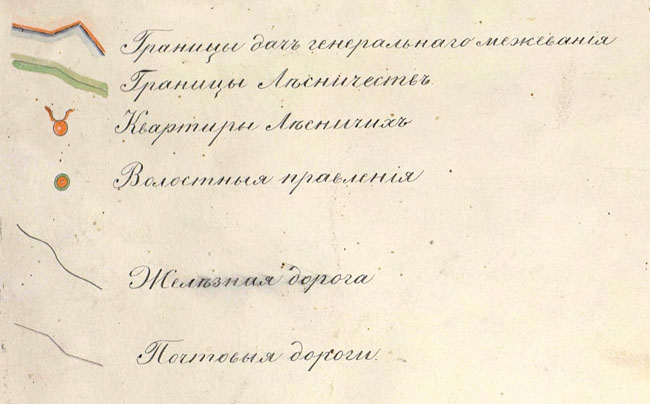 Границы дачъ генеральнаго межеванія
Границы Лѣсничествъ
Квартиры Лѣсничихъ
Волостныя правленія
Желѣзная дорога
Почтовыя дороги.